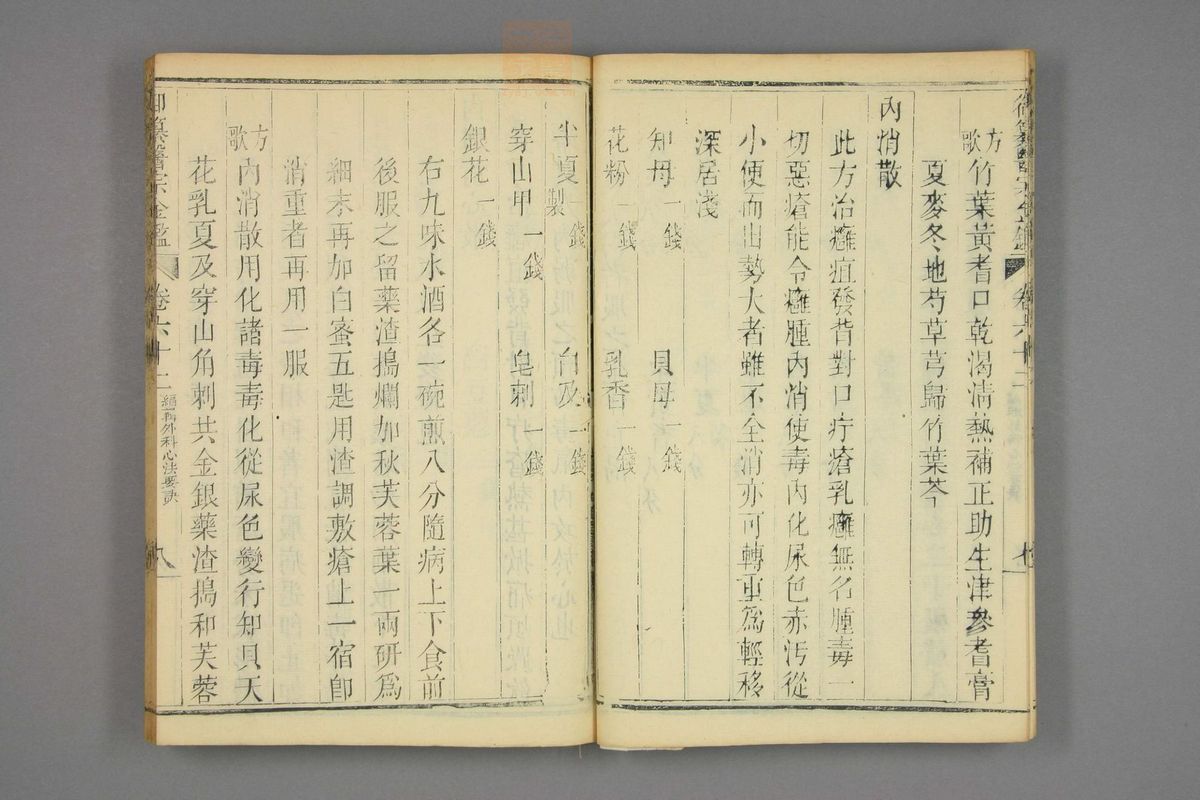 方歌 竹葉黃耆口乾渴清熱補正助生津參耆膏
夏麥冬地芍草芎歸竹葉芩
內消散
此方治癰疽發背對口疔瘡乳癰無名腫毒一
切惡瘡能令癰腫內消使毒內化尿色赤汚從
小便而出勢大者雖不全消亦可轉重爲輕移
深居淺
知母一錢 貝母一錢
花粉一錢 乳香一錢
半夏製一錢 白及一錢
穿山甲一錢 皂刺一錢
銀花一錢
右九味水酒各一碗煎八分隨病上下食前
後服之留藥渣搗爛加秋芙蓉葉一兩研爲
細末再加白蜜五匙用渣調敷瘡上一宿卽
消重者再用一服
方歌 內消散用化諸毒毒化從尿色變行知貝天
花乳夏及穿山角刺共金銀藥渣搗和芙蓉
御纂醫宗金鑑 卷六十二 編輯外科心法要訣 八
御纂醫宗金鑑 卷六十二 七